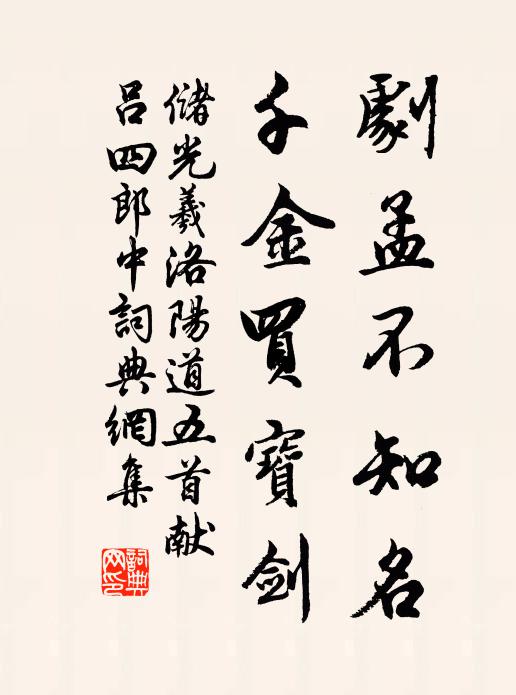 劇孟不知名
千金買寶劍
儲光羲洛陽道五首献
呂四郎中詞典網集
詞典
网印